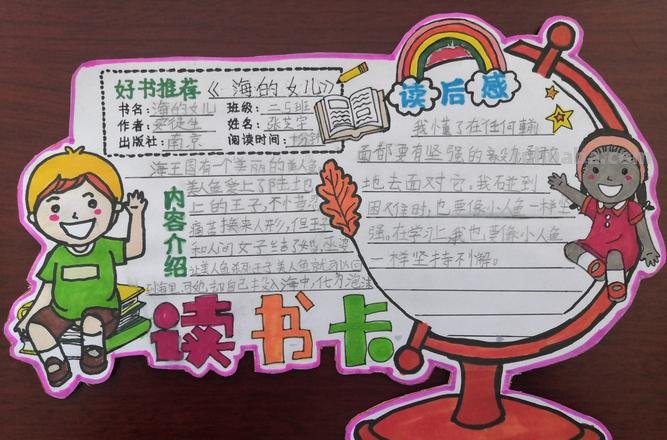 好书推荐《海的女儿》
书名：海的女儿 班级：二5班
作者：安徒生 姓名：张芝宇
出版社：南京 阅读时间：
内容介绍
海王国有一个美丽的美人鱼
美人鱼爱上了陆地
上的王子，不惜忍
痛苦换来人形，但王子
和人间女子结了婚，巫婆
让美人鱼杀死王子美人鱼就可以回
到海里，可她，把自己投入海中，化为泡沫
读后感
我懂了在任何
面都要有坚强的
地去面对它。我碰到
困难时，也要像小人鱼一样坚
强。在学习上我也要像小人鱼
一样坚持不懈。
读书卡